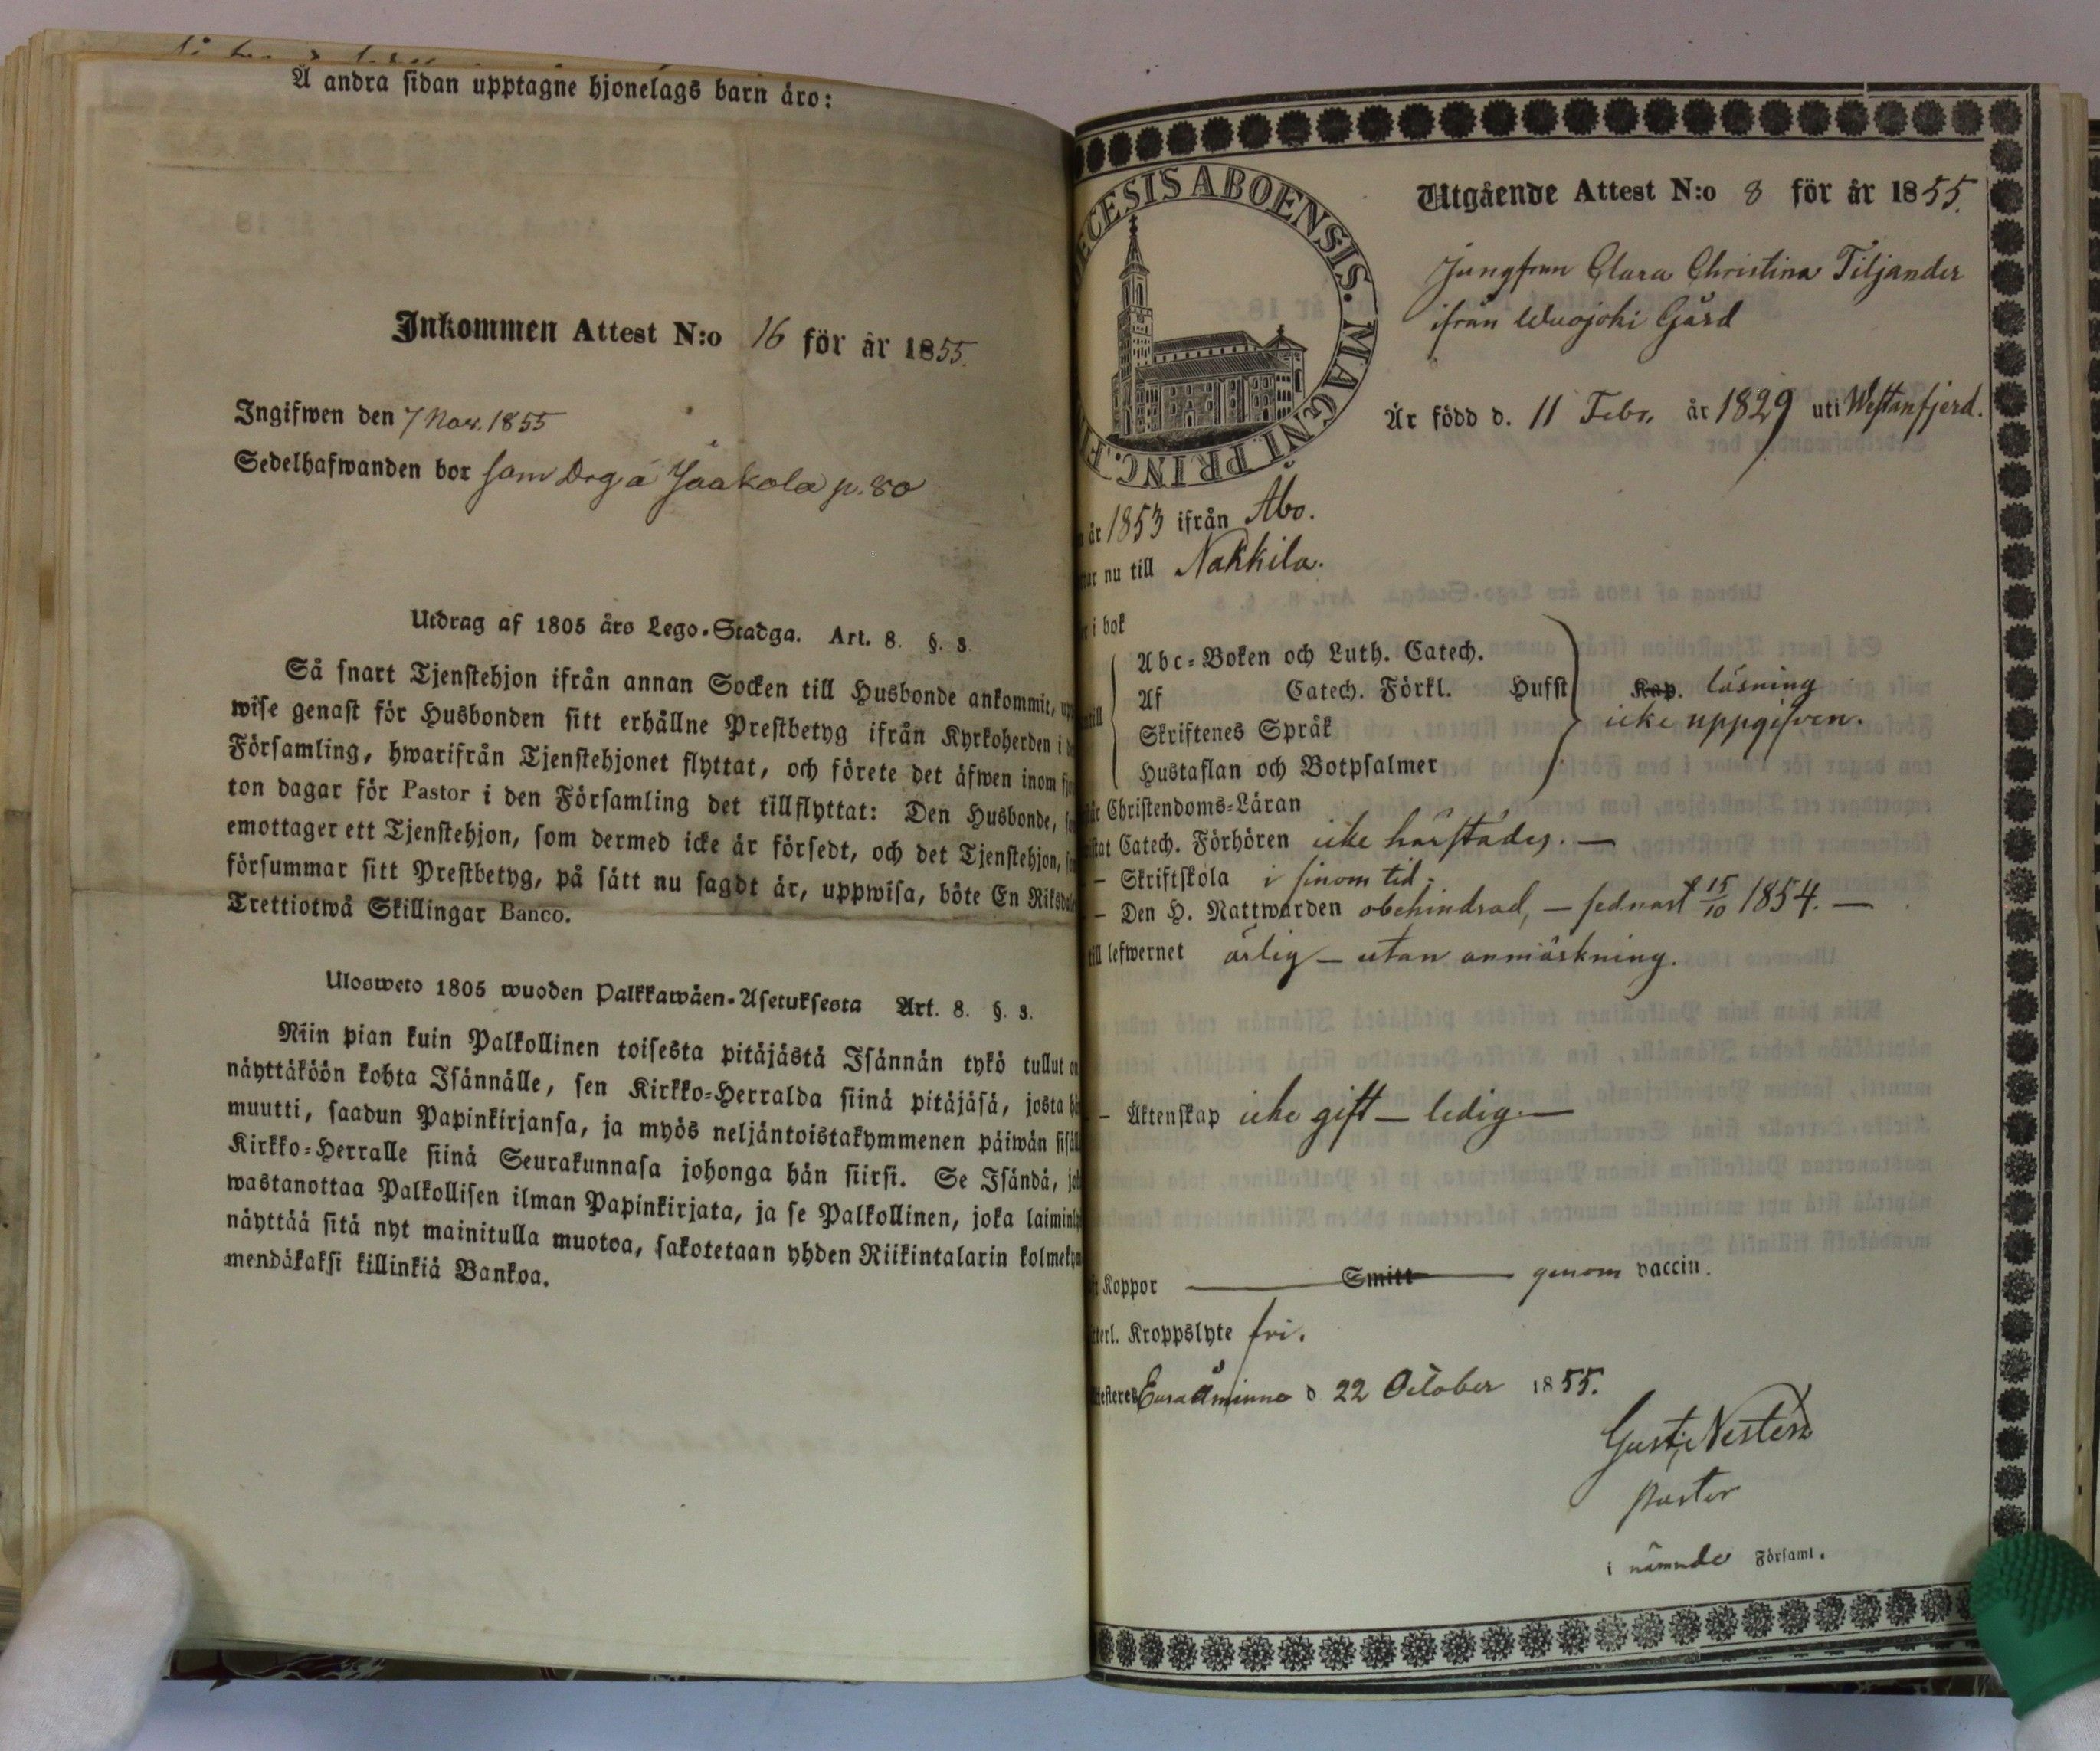 Å andra sidan upptagne hjonelags barn äro:
Inkommen Attest N:o 16 för år 1855.
Ingifwen den 7 Nov. 1855
Sedelhafwanden bor som Drg å Jaakola p. 80
Utdrag af 1805 års Lego-Stadga. Art. 8. §. 3.
Så snart Tjenstehjon ifrån annan Socken till Husbonde ankommit,
wise genast för Husbonden sitt erhållne Prestbetyg ifrån Kyrkoherden i
Församling, hwarifrån Tjenstehjonet flyttat, och förete det äfwen inom
ton dagar för Pastor i den Församling det tillflyttat: Den Husbonde,
emottager ett Tjenstehjon, som dermed icke är försedt, och det Tjenstehjon,
försummar sitt Prestbetyg, på sätt nu sagdt är, uppwisa, böte En
Trettiotwå Skillingar Banco.
Ulosweto 1805 wuoden Palkkawäen-Asetuksesta Art. 8. §. 3.
Niin pian kuin Palkollinen toisesta pitäjästä Isännän tykö tullut
näyttäköön kohta Isännälle, sen Kirkko-Herralda siinä pitäjäsä, josta
muutti, saadun Papinkirjansa, ja myös neljäntoistakymmenen päiwän
Kirkko-Herralle siinä Seurakunnasa johonga hän siirsi. Se Isändä,
wastanottaa Palkollisen ilman Papinkirjata, ja se Palkollinen, joka
näyttää sitä nyt mainitulla muotoa, sakotetaan yhden Riikintalarin
mendäkaksi killinkiä Bankoa.
ECESIS ABOENSIS. MAGNI PRINC. F
Utgående Attest N:o 8 för år 1855.
Jungfrun Clara Christina Tiljander
ifrån Wuojoki Gård
Är född d. 11 Febr. år 1829 uti Westanfjerd.
år 1853 ifrån Åbo.
nu till Nakkila.
i bok
Abc-Boken och Luth. Catech.
Af Catech. Förkl. Hufst Kap. läsning
Skriftenes Språk icke uppgifven.
Hustaflan och Botpsalmer
Christendoms-Läran
Catech. Förhören icke härstädes. —
— Skriftskola i sinom tid.
— Den H. Nattwarden obehindrad, — sednast 15/10 1854. —
lefwernet ärlig — utan anmärkning.
— Äktenskap icke gift — ledig. —
Koppor Smitt genom vaccin.
Kroppslyte fri.
Eura Åminne d 22 October 1855.
Pastor
i nämnde Församl.